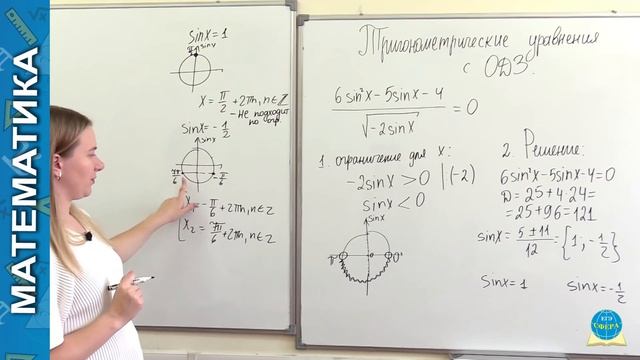 МАТЕМАТИКА
sin x = 1
π/2 sin x
x = π/2 + 2πn, n ∈ Z
- не подходит
по огр.
sin x = - 1/2
sin x
7π/6
- π/6
x₁ = - π/6 + 2πn, n ∈ Z
x₂ = 7π/6 + 2πn, n ∈ Z
Тригонометрические уравнения
с ОДЗ.
(6 sin²x - 5 sin x - 4) / √(-2 sin x) = 0
1. ограничение для x:
-2 sin x > 0 | (-2)
sin x < 0
sin x
π
0
2. Решение:
6 sin²x - 5 sin x - 4 = 0
D = 25 + 4·24 =
= 25 + 96 = 121
sin x = (5 ± 11) / 12 = {1; - 1/2}
sin x = 1 sin x = - 1/2
ЕГЭ
СФЕРА